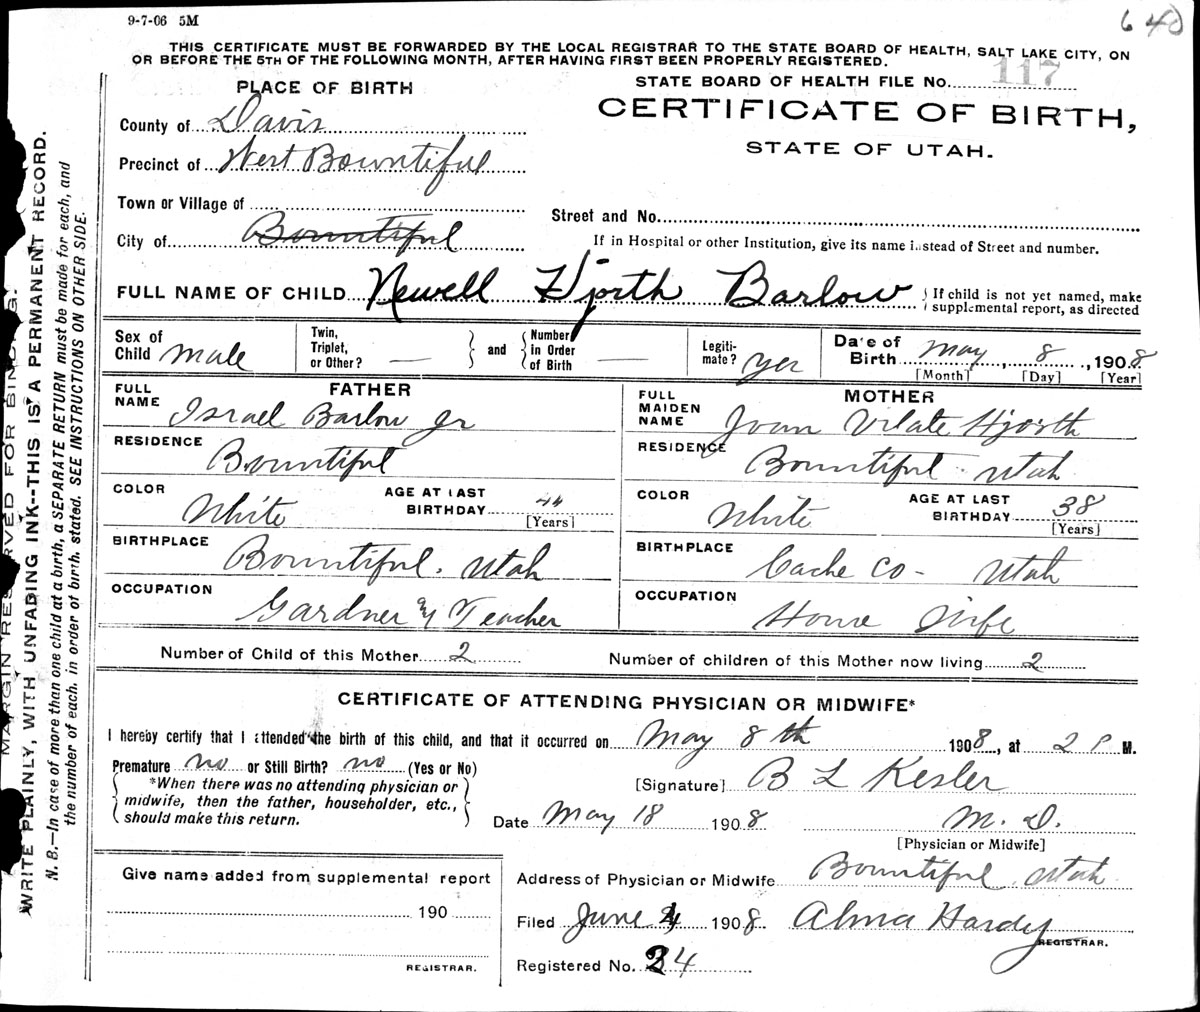 9-7-06 5M
640
THIS CERTIFICATE MUST BE FORWARDED BY THE LOCAL REGISTRAR TO THE STATE BOARD OF HEALTH, SALT LAKE CITY, ON
OR BEFORE THE 5TH OF THE FOLLOWING MONTH, AFTER HAVING FIRST BEEN PROPERLY REGISTERED.
STATE BOARD OF HEALTH FILE No. 117
PLACE OF BIRTH
CERTIFICATE OF BIRTH,
STATE OF UTAH.
County of Davis
Precinct of West Bountiful
Town or Village of
City of Bountiful
Street and No.
If in Hospital or other Institution, give its name instead of Street and number.
FULL NAME OF CHILD Newell Hjorth Barlow
If child is not yet named, make
supplemental report, as directed
Sex of
Child male
Twin,
Triplet,
or Other? —
and
Number
in Order
of Birth —
Legiti-
mate? yes
Date of
Birth May 8, 1908
[Month] [Day] [Year]
FATHER
FULL
NAME Israel Barlow Jr
RESIDENCE
Bountiful
COLOR White
AGE AT LAST
BIRTHDAY 44
[Years]
BIRTHPLACE
Bountiful. Utah
OCCUPATION
Gardner & Teacher
MOTHER
FULL
MAIDEN
NAME Joan Vilate Hjorth
RESIDENCE
Bountiful Utah
COLOR White
AGE AT LAST
BIRTHDAY 38
[Years]
BIRTHPLACE
Cache Co - Utah
OCCUPATION
House Wife
Number of Child of this Mother 2
Number of children of this Mother now living 2
CERTIFICATE OF ATTENDING PHYSICIAN OR MIDWIFE*
I hereby certify that I attended the birth of this child, and that it occurred on May 8th 1908, at 2 P M.
Premature no or Still Birth? no (Yes or No)
*When there was no attending physician or
midwife, then the father, householder, etc.,
should make this return.
[Signature] B L Kesler
Date May 18 1908 M. D.
[Physician or Midwife]
Give name added from supplemental report
190
REGISTRAR.
Address of Physician or Midwife Bountiful Utah
Filed June 4 1908 Alma Hardy
REGISTRAR.
Registered No. 34
MARGIN RESERVED FOR BINDING.
WRITE PLAINLY, WITH UNFADING INK--THIS IS A PERMANENT RECORD.
N. B.—In case of more than one child at a birth, a SEPARATE RETURN must be made for each, and
the number of each, in order of birth, stated. SEE INSTRUCTIONS ON OTHER SIDE.